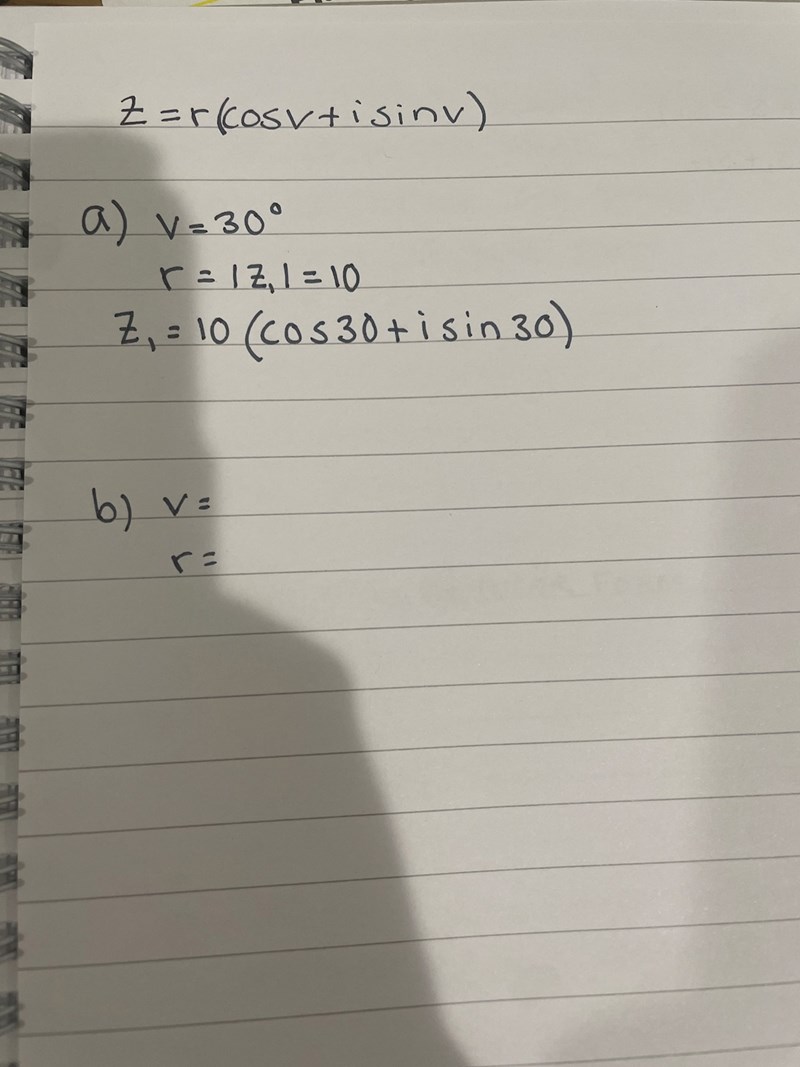 z = r(cosv + i sinv)
a) v = 30°
r = |z₁| = 10
z₁ = 10 (cos30 + i sin 30)
b) v =
r =